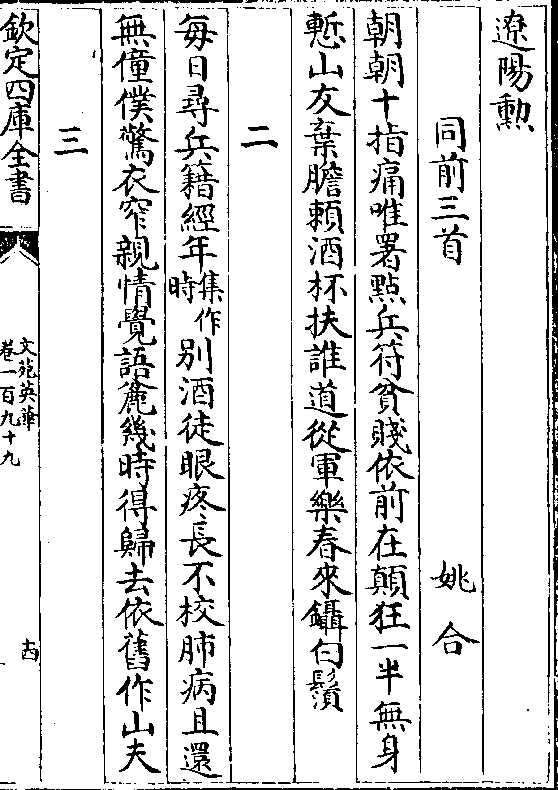 遼陽勲
同前三首　姚合
朝朝十指痛唯署㸃兵符貧賤依前在顛狂一半無身
慙山友棄膽頼酒杯扶誰道從軍樂春來鑷白鬚
二
每日尋兵籍經年集作時别酒徒眼疼長不校肺病且還
無僮僕驚衣窄親情覺語麄幾時得歸去依舊作山夫
三
欽定四庫全書
文苑英華
卷一百九十九
十四